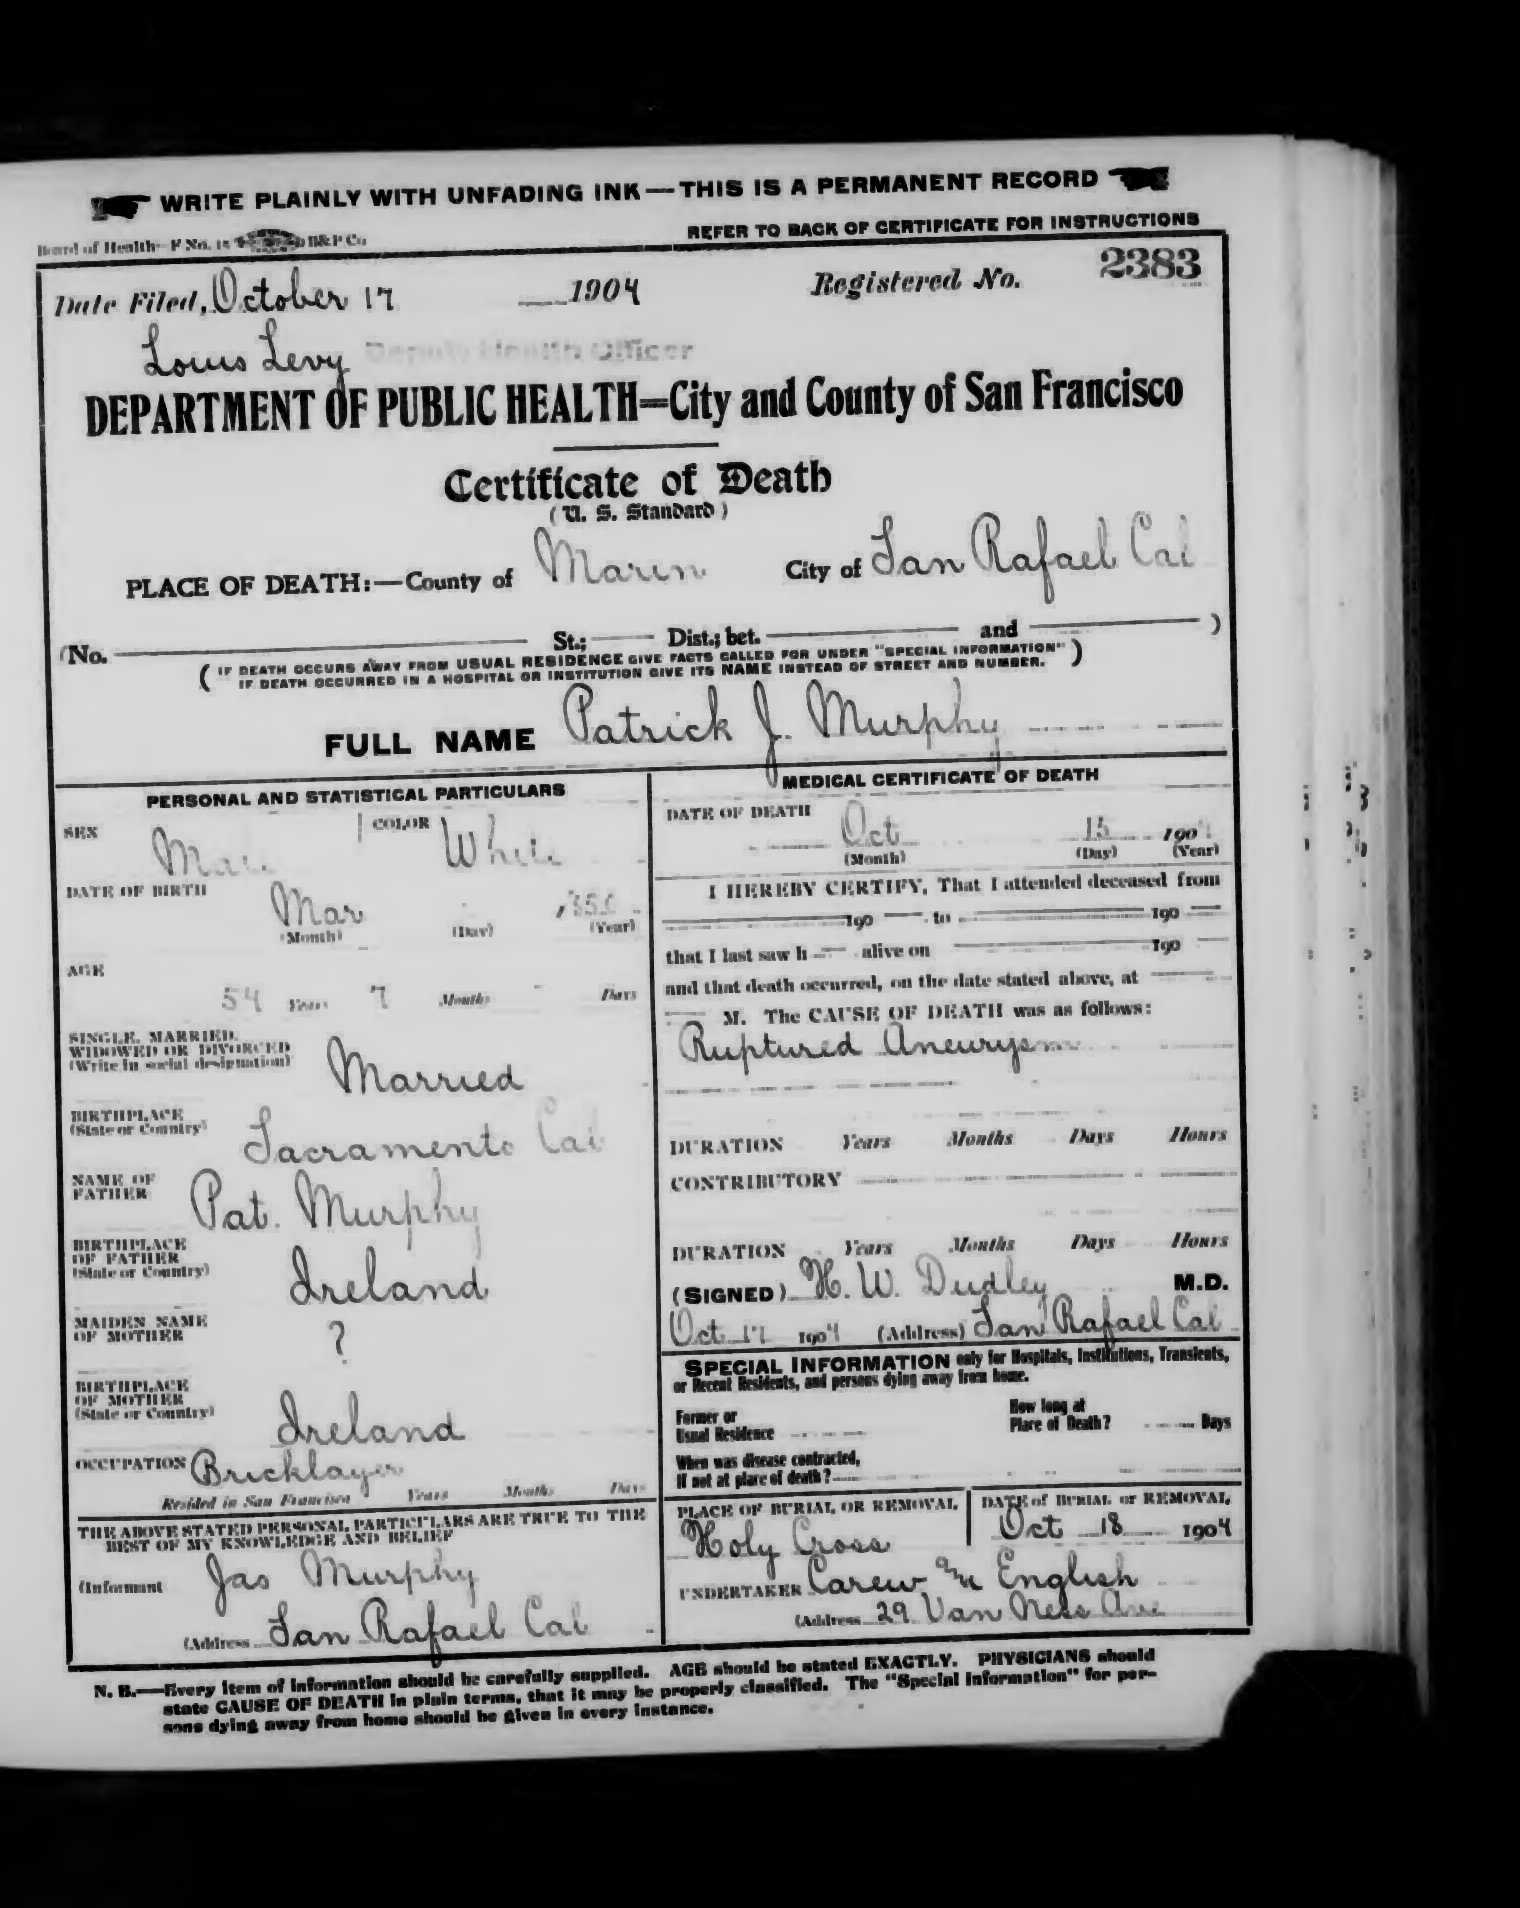 WRITE PLAINLY WITH UNFADING INK—THIS IS A PERMANENT RECORD
Board of Health—F No. 15 B&P Co
REFER TO BACK OF CERTIFICATE FOR INSTRUCTIONS
Date Filed, October 17 1904 Registered No. 2383
Louis Levy Deputy Health Officer
DEPARTMENT OF PUBLIC HEALTH=City and County of San Francisco
Certificate of Death
(U. S. Standard)
PLACE OF DEATH:—County of Marin City of San Rafael Cal
(No. St.; Dist.; bet. and )
(IF DEATH OCCURS AWAY FROM USUAL RESIDENCE GIVE FACTS CALLED FOR UNDER "SPECIAL INFORMATION"
IF DEATH OCCURRED IN A HOSPITAL OR INSTITUTION GIVE ITS NAME INSTEAD OF STREET AND NUMBER.)
FULL NAME Patrick J. Murphy
PERSONAL AND STATISTICAL PARTICULARS
SEX Male COLOR White
DATE OF BIRTH
Mar 1850
(Month) (Day) (Year)
AGE
54 Years 7 Months - Days
SINGLE, MARRIED,
WIDOWED OR DIVORCED
(Write in social designation) Married
BIRTHPLACE
(State or Country) Sacramento Cal
NAME OF
FATHER Pat. Murphy
BIRTHPLACE
OF FATHER
(State or Country) Ireland
MAIDEN NAME
OF MOTHER ?
BIRTHPLACE
OF MOTHER
(State or Country) Ireland
OCCUPATION Bricklayer
Resided in San Francisco Years Months Days
THE ABOVE STATED PERSONAL PARTICULARS ARE TRUE TO THE
BEST OF MY KNOWLEDGE AND BELIEF
(Informant Jas Murphy
(Address San Rafael Cal
MEDICAL CERTIFICATE OF DEATH
DATE OF DEATH
Oct 15 1904
(Month) (Day) (Year)
I HEREBY CERTIFY, That I attended deceased from
190 to 190
that I last saw h alive on 190
and that death occurred, on the date stated above, at
M. The CAUSE OF DEATH was as follows:
Ruptured Aneurysm
DURATION Years Months Days Hours
CONTRIBUTORY
DURATION Years Months Days Hours
(SIGNED) H. W. Dudley M.D.
Oct 17 1904 (Address) San Rafael Cal
SPECIAL INFORMATION only for Hospitals, Institutions, Transients,
or Recent Residents, and persons dying away from home.
Former or
Usual Residence
How long at
Place of Death? Days
When was disease contracted,
If not at place of death?
PLACE OF BURIAL OR REMOVAL
Holy Cross
DATE of BURIAL or REMOVAL
Oct 18 1904
UNDERTAKER Carew and English
(Address 29 Van Ness Ave
N. B.—Every item of information should be carefully supplied. AGE should be stated EXACTLY. PHYSICIANS should
state CAUSE OF DEATH in plain terms, that it may be properly classified. The "Special Information" for per-
sons dying away from home should be given in every instance.